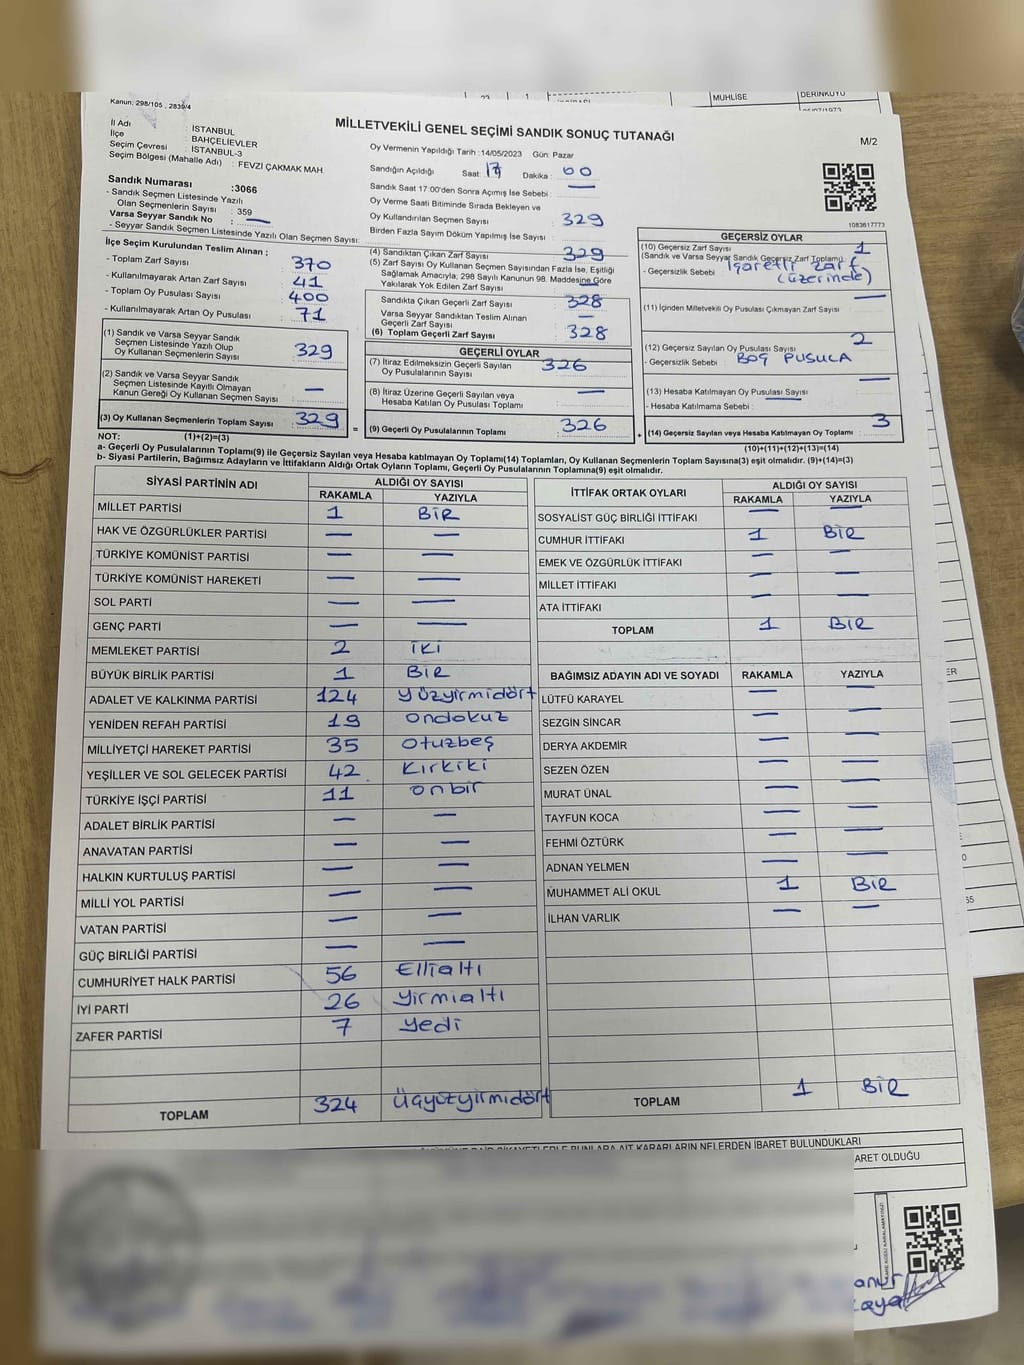 MUHLİSE
DERİNKUYU
Kanun: 298/105 , 2839/4
MİLLETVEKİLİ GENEL SEÇİMİ SANDIK SONUÇ TUTANAĞI
M/2
İl Adı : İSTANBUL
İlçe : BAHÇELİEVLER
Seçim Çevresi : İSTANBUL-3
Seçim Bölgesi (Mahalle Adı) : FEVZİ ÇAKMAK MAH
Sandık Numarası :3066
- Sandık Seçmen Listesinde Yazılı
Olan Seçmenlerin Sayısı : 359
Varsa Seyyar Sandık No : —
- Seyyar Sandık Seçmen Listesinde Yazılı Olan Seçmen Sayısı:
Oy Vermenin Yapıldığı Tarih :14/05/2023 Gün: Pazar
Sandığın Açıldığı Saat: 17 Dakika : 00
Sandık Saat 17:00'den Sonra Açımış İse Sebebi : —
Oy Verme Saati Bitiminde Sırada Bekleyen ve
Oy Kullandırılan Seçmen Sayısı : 329
Birden Fazla Sayım Döküm Yapılmış İse Sayısı :
1083617773
İlçe Seçim Kurulundan Teslim Alınan ;
- Toplam Zarf Sayısı : 370
- Kullanılmayarak Artan Zarf Sayısı : 41
- Toplam Oy Pusulası Sayısı : 400
- Kullanılmayarak Artan Oy Pusulası : 71
(1) Sandık ve Varsa Seyyar Sandık
Seçmen Listesinde Yazılı Olup
Oy Kullanan Seçmenlerin Sayısı : 329
(2) Sandık ve Varsa Seyyar Sandık
Seçmen Listesinde Kayıtlı Olmayan
Kanun Gereği Oy Kullanan Seçmen Sayısı : —
(3) Oy Kullanan Seçmenlerin Toplam Sayısı : 329
(4) Sandıktan Çıkan Zarf Sayısı : 329
(5) Zarf Sayısı Oy Kullanan Seçmen Sayısından Fazla İse, Eşitliği
Sağlamak Amacıyla, 298 Sayılı Kanunun 98. Maddesine Göre
Yakılarak Yok Edilen Zarf Sayısı : —
Sandıkta Çıkan Geçerli Zarf Sayısı : 328
Varsa Seyyar Sandıktan Teslim Alınan
Geçerli Zarf Sayısı : —
(6) Toplam Geçerli Zarf Sayısı : 328
GEÇERLİ OYLAR
(7) İtiraz Edilmeksizin Geçerli Sayılan
Oy Pusulalarının Sayısı : 326
(8) İtiraz Üzerine Geçerli Sayılan veya
Hesaba Katılan Oy Pusulası Toplamı : —
= (9) Geçerli Oy Pusulalarının Toplamı : 326
GEÇERSİZ OYLAR
(10) Geçersiz Zarf Sayısı : 1
(Sandık ve Varsa Seyyar Sandık Geçersiz Zarf Toplamı)
- Geçersizlik Sebebi : İşaretli zarf
(üzerinde)
(11) İçinden Milletvekili Oy Pusulası Çıkmayan Zarf Sayısı : —
(12) Geçersiz Sayılan Oy Pusulası Sayısı : 2
- Geçersizlik Sebebi : BOŞ PUSULA
(13) Hesaba Katılmayan Oy Pusulası Sayısı : —
- Hesaba Katılmama Sebebi : —
+ (14) Geçersiz Sayılan veya Hesaba Katılmayan Oy Toplamı : 3
NOT: (1)+(2)=(3)
(10)+(11)+(12)+(13)=(14)
a- Geçerli Oy Pusulalarının Toplamı(9) ile Geçersiz Sayılan veya Hesaba katılmayan Oy Toplamı(14) Toplamları, Oy Kullanan Seçmenlerin Toplam Sayısına(3) eşit olmalıdır. (9)+(14)=(3)
b- Siyasi Partilerin, Bağımsız Adayların ve İttifakların Aldığı Ortak Oyların Toplamı, Geçerli Oy Pusulalarının Toplamına(9) eşit olmalıdır.
SİYASİ PARTİNİN ADI ALDIĞI OY SAYISI
RAKAMLA YAZIYLA
MİLLET PARTİSİ 1 BİR
HAK VE ÖZGÜRLÜKLER PARTİSİ — —
TÜRKİYE KOMÜNİST PARTİSİ — —
TÜRKİYE KOMÜNİST HAREKETİ — —
SOL PARTİ — —
GENÇ PARTİ — —
MEMLEKET PARTİSİ 2 iki
BÜYÜK BİRLİK PARTİSİ 1 BİR
ADALET VE KALKINMA PARTİSİ 124 yüzyirmidört
YENİDEN REFAH PARTİSİ 19 ondokuz
MİLLİYETÇİ HAREKET PARTİSİ 35 otuzbeş
YEŞİLLER VE SOL GELECEK PARTİSİ 42 kırkiki
TÜRKİYE İŞÇİ PARTİSİ 11 onbir
ADALET BİRLİK PARTİSİ — —
ANAVATAN PARTİSİ — —
HALKIN KURTULUŞ PARTİSİ — —
MİLLİ YOL PARTİSİ — —
VATAN PARTİSİ — —
GÜÇ BİRLİĞİ PARTİSİ — —
CUMHURİYET HALK PARTİSİ 56 Ellialtı
İYİ PARTİ 26 yirmialtı
ZAFER PARTİSİ 7 yedi
TOPLAM 324 üçyüzyirmidört
İTTİFAK ORTAK OYLARI ALDIĞI OY SAYISI
RAKAMLA YAZIYLA
SOSYALİST GÜÇ BİRLİĞİ İTTİFAKI — —
CUMHUR İTTİFAKI 1 BİR
EMEK VE ÖZGÜRLÜK İTTİFAKI — —
MİLLET İTTİFAKI — —
ATA İTTİFAKI — —
TOPLAM 1 BİR
BAĞIMSIZ ADAYIN ADI VE SOYADI RAKAMLA YAZIYLA
LÜTFÜ KARAYEL — —
SEZGİN SİNCAR — —
DERYA AKDEMİR — —
SEZEN ÖZEN — —
MURAT ÜNAL — —
TAYFUN KOCA — —
FEHMİ ÖZTÜRK — —
ADNAN YELMEN — —
MUHAMMET ALİ OKUL 1 BİR
İLHAN VARLIK — —
TOPLAM 1 BİR
BUNLARA AİT KARARLARIN NELERDEN İBARET BULUNDUKLARI
ARET OLDUĞU